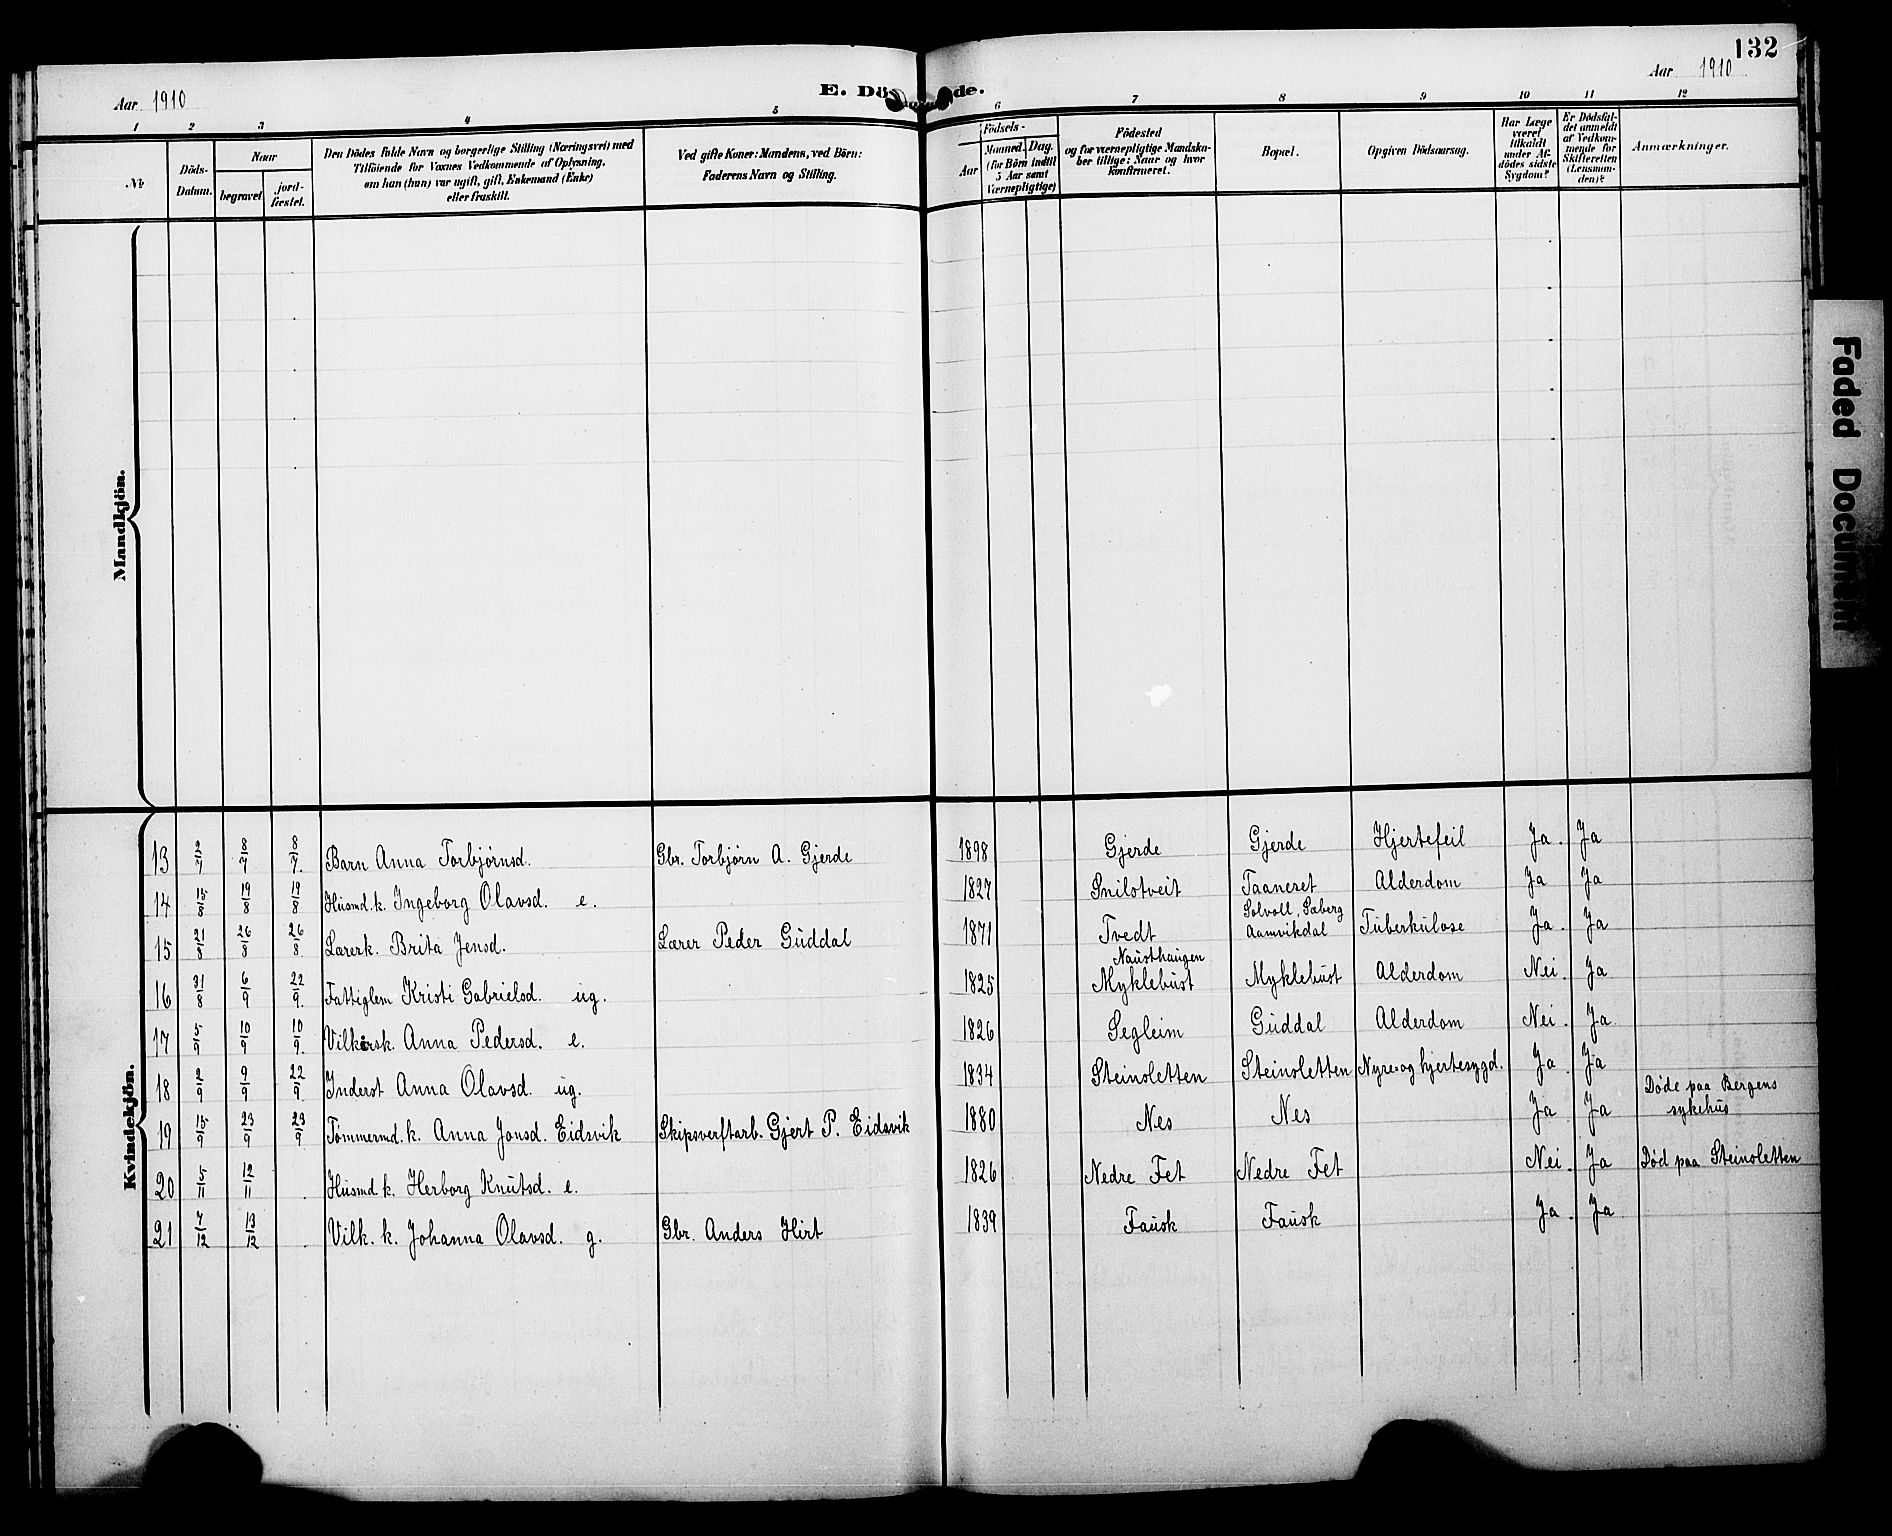 132
Aar 1910
E. Dö de.
Aar 1910
1 2 3 4 5 6 7 8 9 10 11 12
No
Döds-Datum.
Naar
begravet
jord-fæstet.
Den Dödes fulde Navn og borgerlige Stilling (Næringsvei) med
Tilföiende for Voxnes Vedkommende af Oplysning,
om han (hun) var ugift, gift, Enkemand (Enke)
eller fraskilt.
Ved gifte Koner: Mandens, ved Börn:
Faderens Navn og Stilling.
Födsels-
Aar
Maaned. Dag.
(for Börn indtil
5 Aar samt
Værnepligtige)
Födested
og for værnepligtige Mandska-
ber tillige: Naar og hvor
konfirmeret.
Bopæl.
Opgiven Dödsaarsag.
Har Læge
været
tilkaldt
under Af-
dödes sidste
Sygdom?
Er Dödsfal-
det anmeldt
af Vedkom-
mende for
Skifteretten
(Lensman-
den)?
Anmærkninger.
Mandkjön.
Kvindekjön.
13 2/7 8/7 8/7. Barn Anna Torbjørnsd. Gbr. Torbjørn A. Gjerde 1898 Gjerde Gjerde Hjertefeil Ja. Ja
14 15/8 19/8 19/8 Husmd.k. Ingeborg Olavsd. e. 1827 Snilstveit Taaneret Alderdom Ja Ja
15 21/8 26/8 26/8 Lærerk. Brita Jensd. Lærer Peder Guddal 1871 Tvedt Solvoll, Sæberg
Aamvikdal Tuberkulose Ja. Ja
16 31/8 6/9 22/9. Fattiglem Kristi Gabrielsd. ug. 1825 Nausthaugen
Myklebust Myklebust Alderdom Nei. Ja
17 5/9 10/9 10/9. Vilkårsk. Anna Pedersd. e. 1826 Segleim Guddal Alderdom Nei. Ja
18 2/9 9/9 22/9 Inderst Anna Olavsd. ug. 1834 Steinsletten Steinsletten Nyre og hjertesygd. Ja. Ja
19 15/9 23/9 23/9 Tømmermd.k. Anna Jonsd. Eidsvik Skipsverftarb. Gjert P. Eidsvik 1880 Nes Nes Ja Ja Døde paa Bergens
sykehus
20 5/11 12/11 Husmd.k. Herborg Knutsd. e. 1826 Nedre Fet Nedre Fet Nei. Ja Død paa Steinsletten
21 7/12 13/12 Vilk. k. Johanna Olavsd. g. Gbr. Anders Hirt 1839 Fausk Fausk Ja. Ja
Faded Document